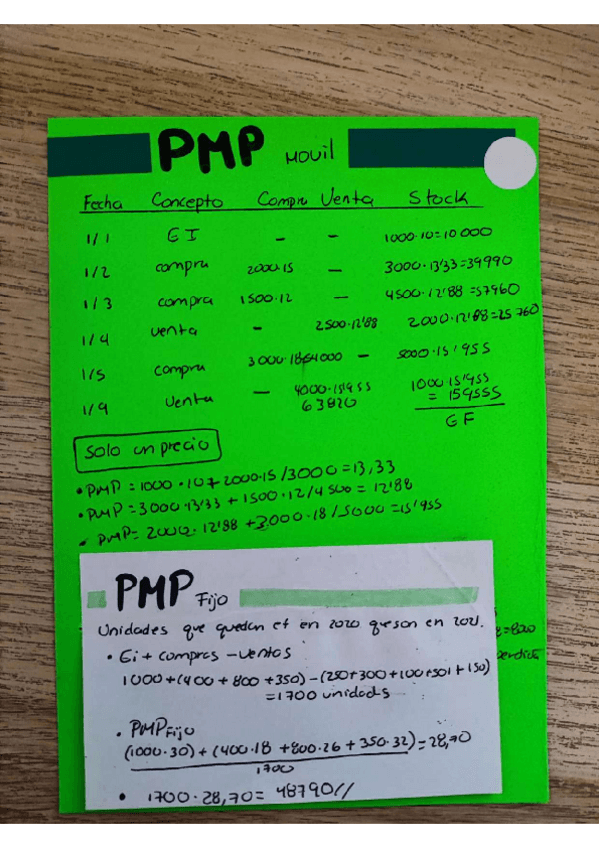 PMP MOVIL
Fecha Concepto Compra Venta Stock
1/1 EI - - 1000·10=10 000
1/2 compra 2000·15 - 3000·13'33=39990
1/3 compra 1500·12 - 4500·12'88=57960
1/4 venta - 2500·12'88 2000·12'88=25 760
1/5 compra 3000·18 54000 - 5000·15'955
1/9 Venta - 4000·15'955 1000·15'955
63820 = 15955S
EF
Solo un precio
• PMP = 1000·10+2000·15/3000=13,33
• PMP=3000·13'33+1500·12/4500=12'88
• PMP=2000·12'88+3000·18/5000=15'955
PMP Fijo
Unidades que quedan ef en 2020 que son en 2021.
• Ei + compras -ventas
1000+(400+800+350)-(250+300+100+50+150)
=1700 unidads
• PMP Fijo
(1000·30)+(400·18+800·26+350·32)=28,70
1700
• 1700·28,70=48790//
=820
perdida